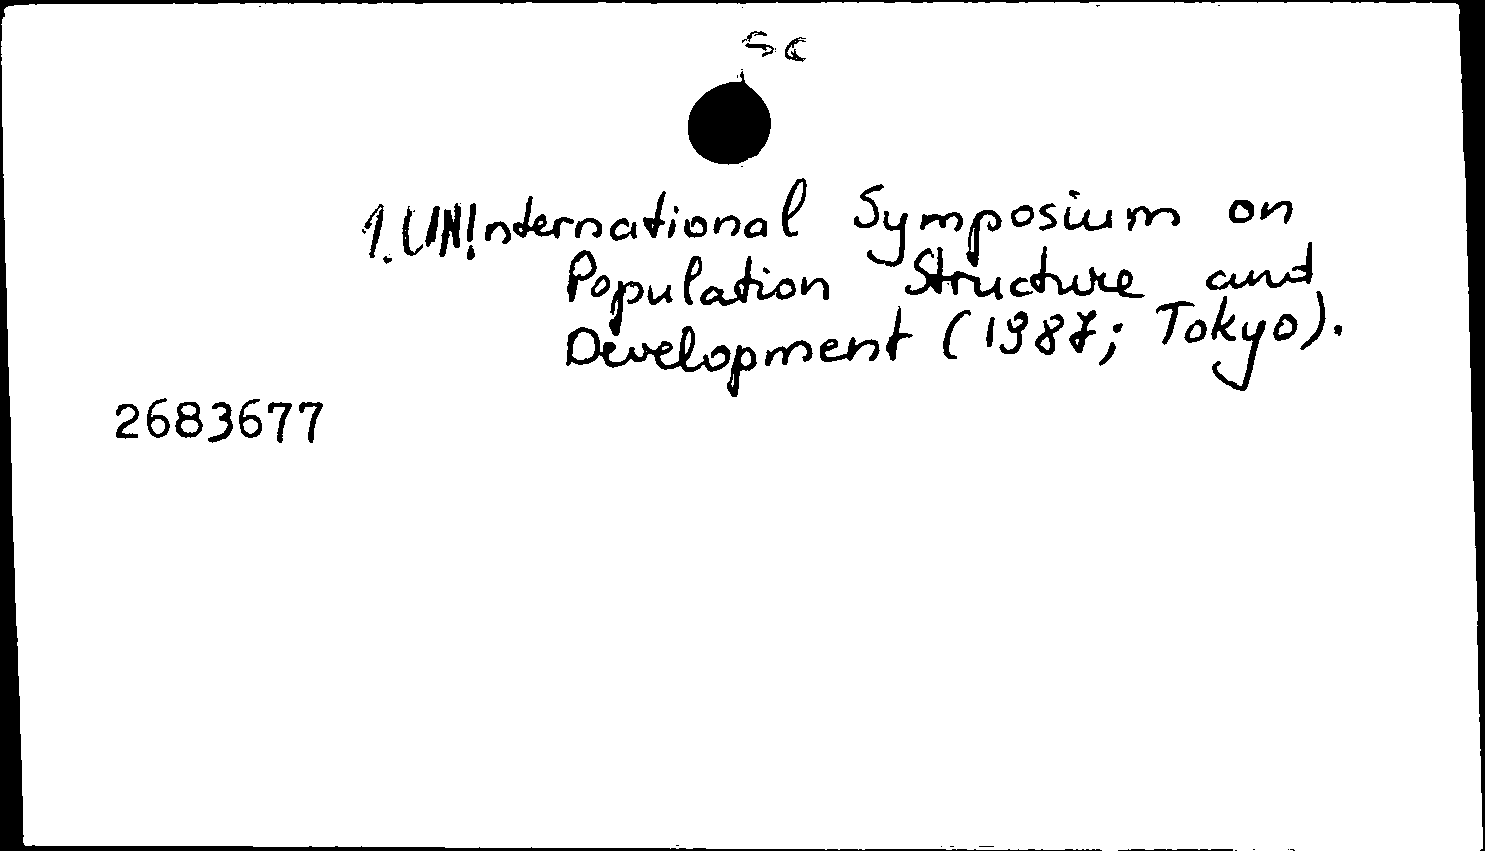 SC
1. UN International Symposium on
Population Structure and
Development (1987; Tokyo).
2683677